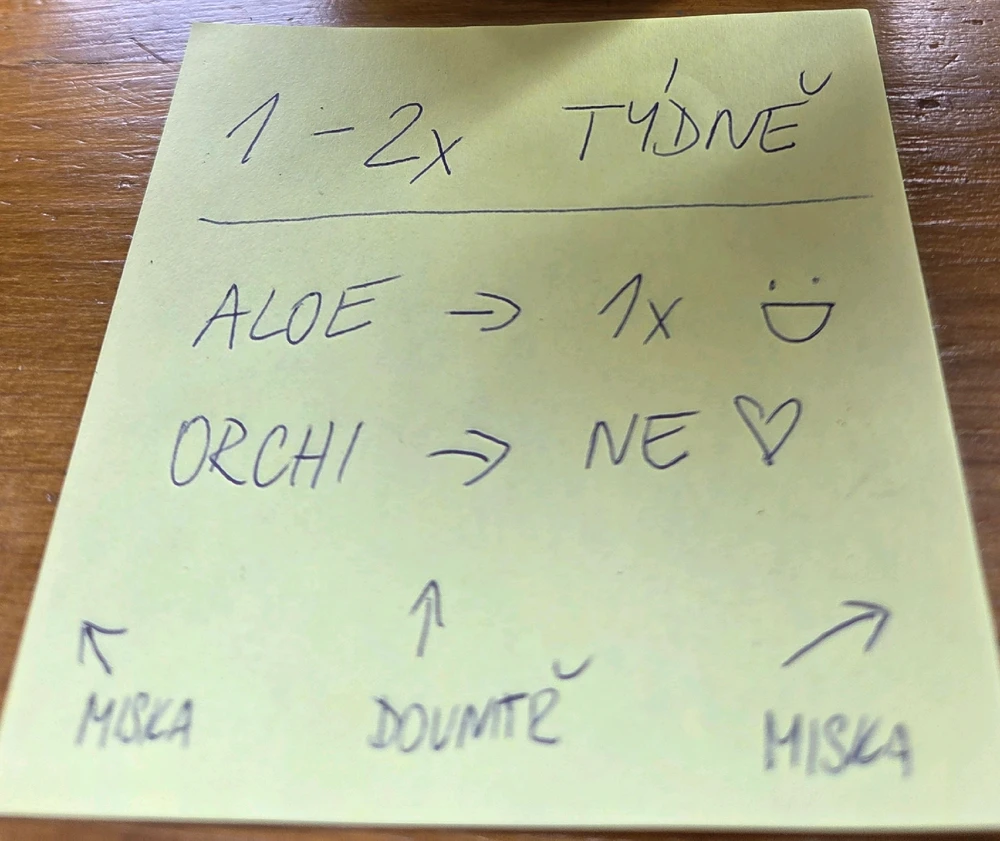 1 - 2x TÝDNĚ
ALOE → 1x
ORCHI → NE ♡
↖ ↑ ↗
MISKA DOVNITŘ MISKA